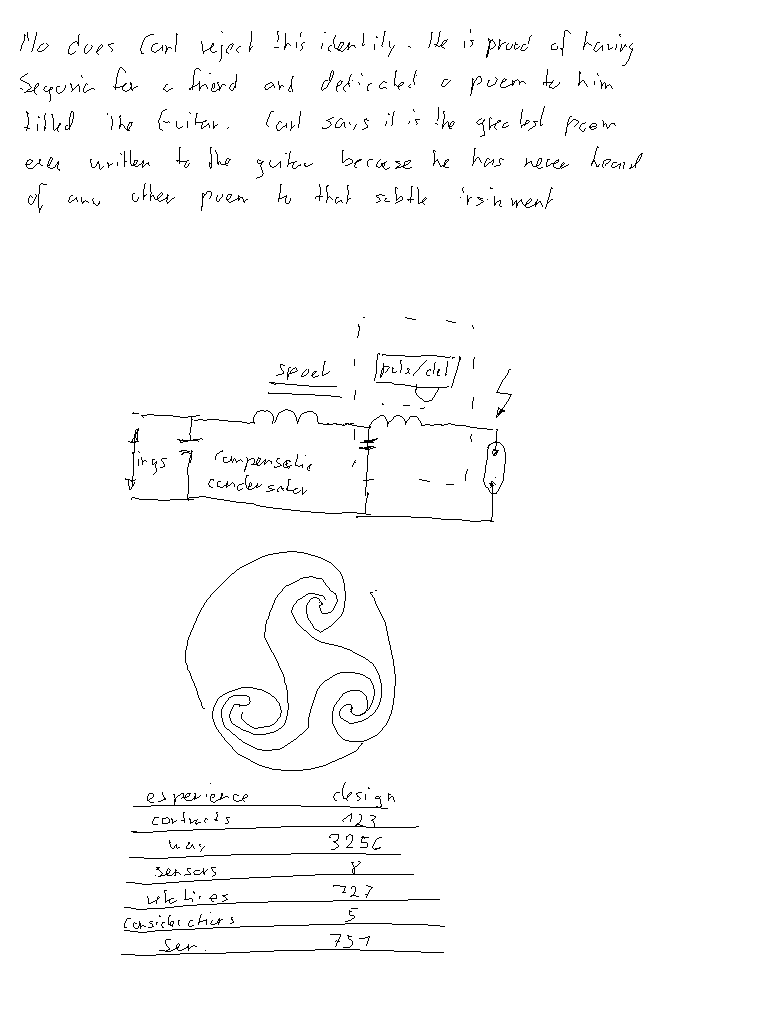 No does Carl reject this identity. He is proud of having
Segovia for a friend and dedicated a poem to him
titled The Guitar. Carl says it is the greatest poem
ever written to the guitar because he has never heard
of any other poem to that subtle
spoel
puls/del
ings
compensatie
condensator
experience design
contracts 123
way 3256
sensors 8
relatives 727
considerations 5
Ser. 751